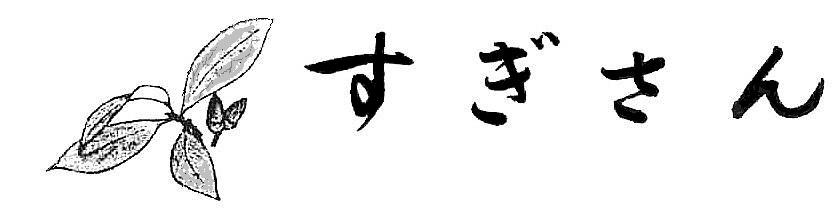 すぎさん